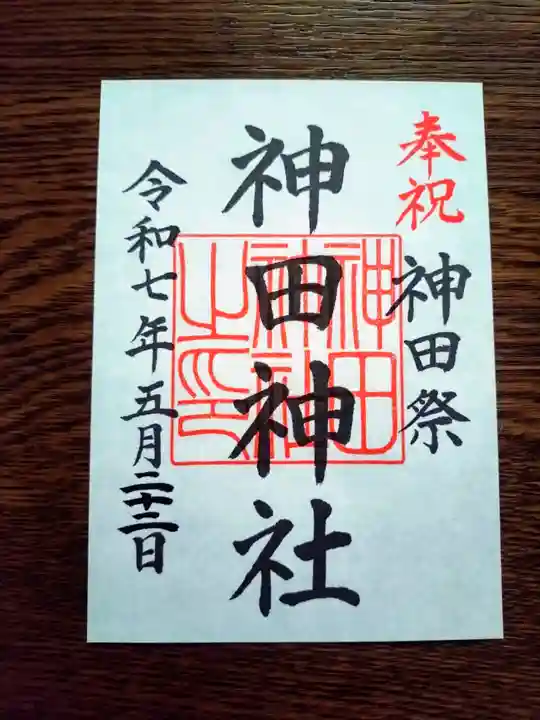 奉祝
神田祭
神田神社
神田
神社
之印
令和七年五月二十二日